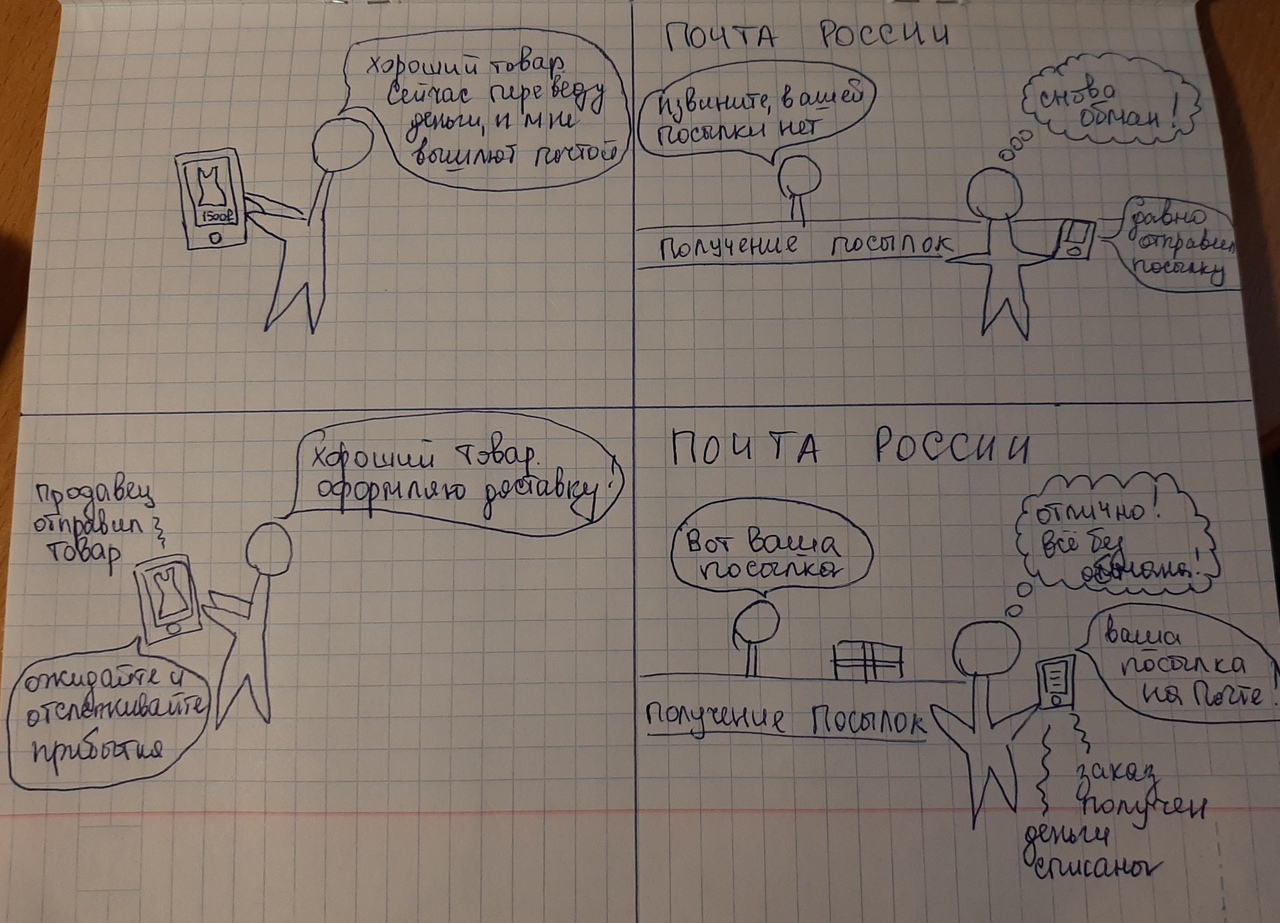 хороший товар.
Сейчас переведу
деньги, и мне
вышлют почтой
1500₽
ПОЧТА РОССИИ
извините, вашей
посылки нет
снова
обман!
получение посылок
давно
отправил
посылку
хороший товар.
оформляю доставку!
продавец
отправил
товар
ожидайте и
отслеживайте
прибытия
ПОЧТА РОССИИ
Вот Ваша
посылка
отлично!
всё без
обмана!
ваша
посылка
на Почте!
получение посылок
заказ
получен
деньги
списаны